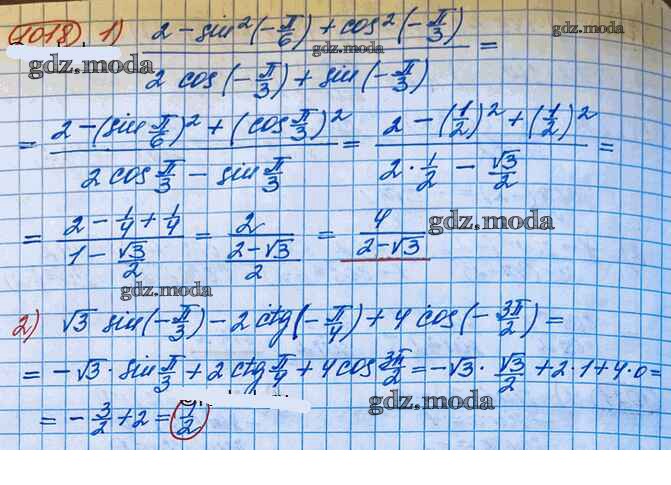 1018 1) (2 - sin²(-π/6) + cos²(-π/3)) / (2 cos(-π/3) + sin(-π/3)) =
gdz.moda gdz.moda gdz.moda
= (2 - (sin π/6)² + (cos π/3)²) / (2 cos π/3 - sin π/3) = (2 - (1/2)² + (1/2)²) / (2 · 1/2 - √3/2) =
= (2 - 1/4 + 1/4) / (1 - √3/2) = 2 / ((2-√3)/2) = 4 / (2-√3)
gdz.moda
gdz.moda
2) √3 sin(-π/3) - 2 ctg(-π/4) + 4 cos(-3π/2) =
= -√3 · sin π/3 + 2 ctg π/4 + 4 cos 3π/2 = -√3 · √3/2 + 2·1 + 4·0 =
= - 3/2 + 2 = 1/2
gdz.moda